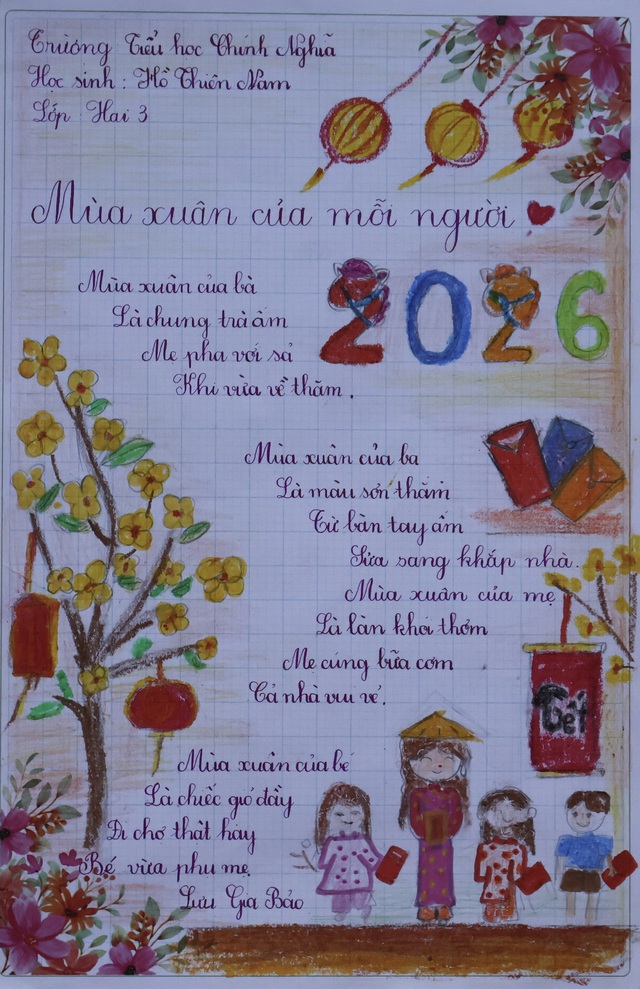 Trường Tiểu học Chính Nghĩa
Học sinh : Hồ Thiên Nam
Lớp Hai 3
Mùa xuân của mỗi người
2026
Mùa xuân của bà
Là chung trà ấm
Mẹ pha với sả
Khi vừa về thăm.
Mùa xuân của ba
Là màu sơn thắm
Từ bàn tay ấm
Sửa sang khắp nhà.
Mùa xuân của mẹ
Là làn khói thơm
Mẹ cúng bữa cơm
Cả nhà vui vẻ.
Tết
Mùa xuân của bé
Là chiếc giỏ đầy
Đi chợ thật hay
Bé vừa phụ mẹ.
Lưu Gia Bảo